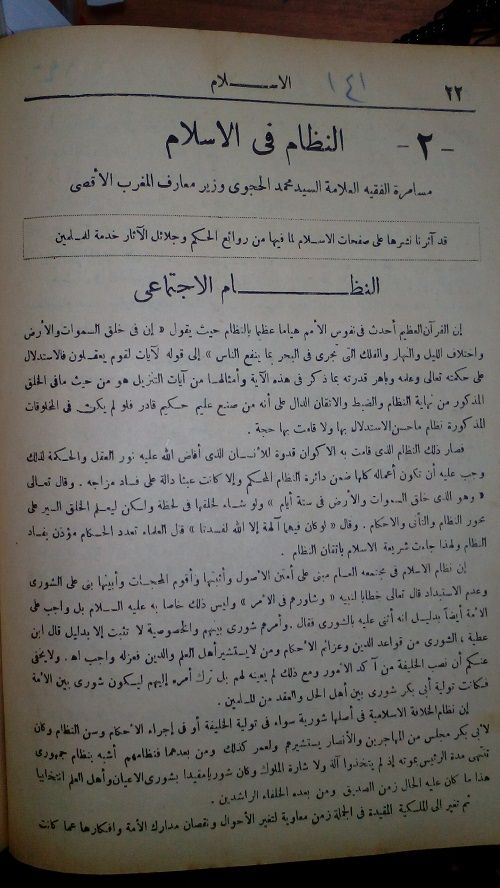 ٢٢
١٤١
الاســـلام
- ٢ - النظام في الاسلام
مسامرة الفقيه العلامة السيد محمد الحجوى وزير معارف المغرب الأقصى
قد آثرنا نشرها على صفحات الاسلام لما فيها من روائع الحكم وجلائل الآثار خدمة للمسلمين
النظـــام الاجتماعى
إن القرآن العظيم أحدث فى نفوس الأمم هياما عظيما بالنظام حيث يقول « إن فى خلق السموات والأرض
واختلاف الليل والنهار والفلك التى تجرى فى البحر بما ينفع الناس » إلى قوله لآيات لقوم يعقلون فالاستدلال
على حكمته تعالى وعلمه وباهر قدرته بما ذكر فى هذه الآية وأمثالها من آيات التنزيل هو من حيث مافى الخلق
المذكور من نهاية النظام والضبط والاتقان الدال على أنه من صنع عليم حكيم قادر فلو لم يكن فى المخلوقات
المذكورة نظام ماحسن الاستدلال بها ولا قامت بها حجة .
فصار ذلك النظام الذى قامت به الاكوان قدوة للانسان الذى أفاض الله عليه نور العقل والحكمة لذلك
وجب عليه أن تكون أعماله كلها ضمن دائرة النظام المحكم وإلا كانت عبثا دالة على فساد مزاجه . وقال تعالى
« وهو الذى خلق السموات والأرض فى ستة أيام » ولو شاء لخلقها فى لحظة ولكن ليعلم الخلق السير على
محور النظام والتأنى والاحكام . وقال « لو كان فيهما آلهة إلا الله لفسدتا » قال العلماء تعدد الحكام مؤذن بفساد
النظام ولهذا جاءت شريعة الاسلام باتقان النظام .
إن نظام الاسلام فى مجتمعه العام مبنى على أمتن الأصول وأثبتها وأقوم المحجات وأبينها بنى على الشورى
وعدم الاستبداد قال تعالى خطابا لنبيه « وشاورهم فى الأمر » وليس ذلك خاصا به عليه السلام بل واجب على
الأمة أيضاً بدليل انه أثنى عليه بالشورى فقال . وأمرهم شورى بينهم والخصوصية لا تثبت إلا بدليل قال ابن
عطية ، الشورى من قواعد الدين وعزائم الأحكام ومن لا يستشير أهل العلم والدين فعزله واجب اهـ . ولا يخفى
عنكم أن نصب الخليفة من آكد الأمور ومع ذلك لم يعينه لهم بل ترك أمره إليهم ليسكون شورى بين الأمة
فكانت تولية أبى بكر شورى بين أهل الحل والعقد من المسلمين .
إن نظام الخلافة الاسلامية فى أصلها شورية سواء فى تولية الخليفة أو فى إجراء الأحكام وسن النظام وكان
لأبى بكر مجلس من المهاجرين والأنصار يستشيرهم ولعمر كذلك ومن بعدهما فنظامهم أشبه بنظام جمهورى
تنتهى مدة الرئيس بموته إذ لم يتخذوا آلة ولا شارة الملوك وكان شوريا مفيدا بشورى الاعيان وأهل العلم انتخابيا
هذا ما كان عليه الحال زمن الصديق ومن بعده الخلفاء الراشدين .
ثم تغير الى الملكية المقيدة فى الجملة زمن معاوية لتغير الأحوال ونقصان مدارك الأمة وافكارها عما كانت